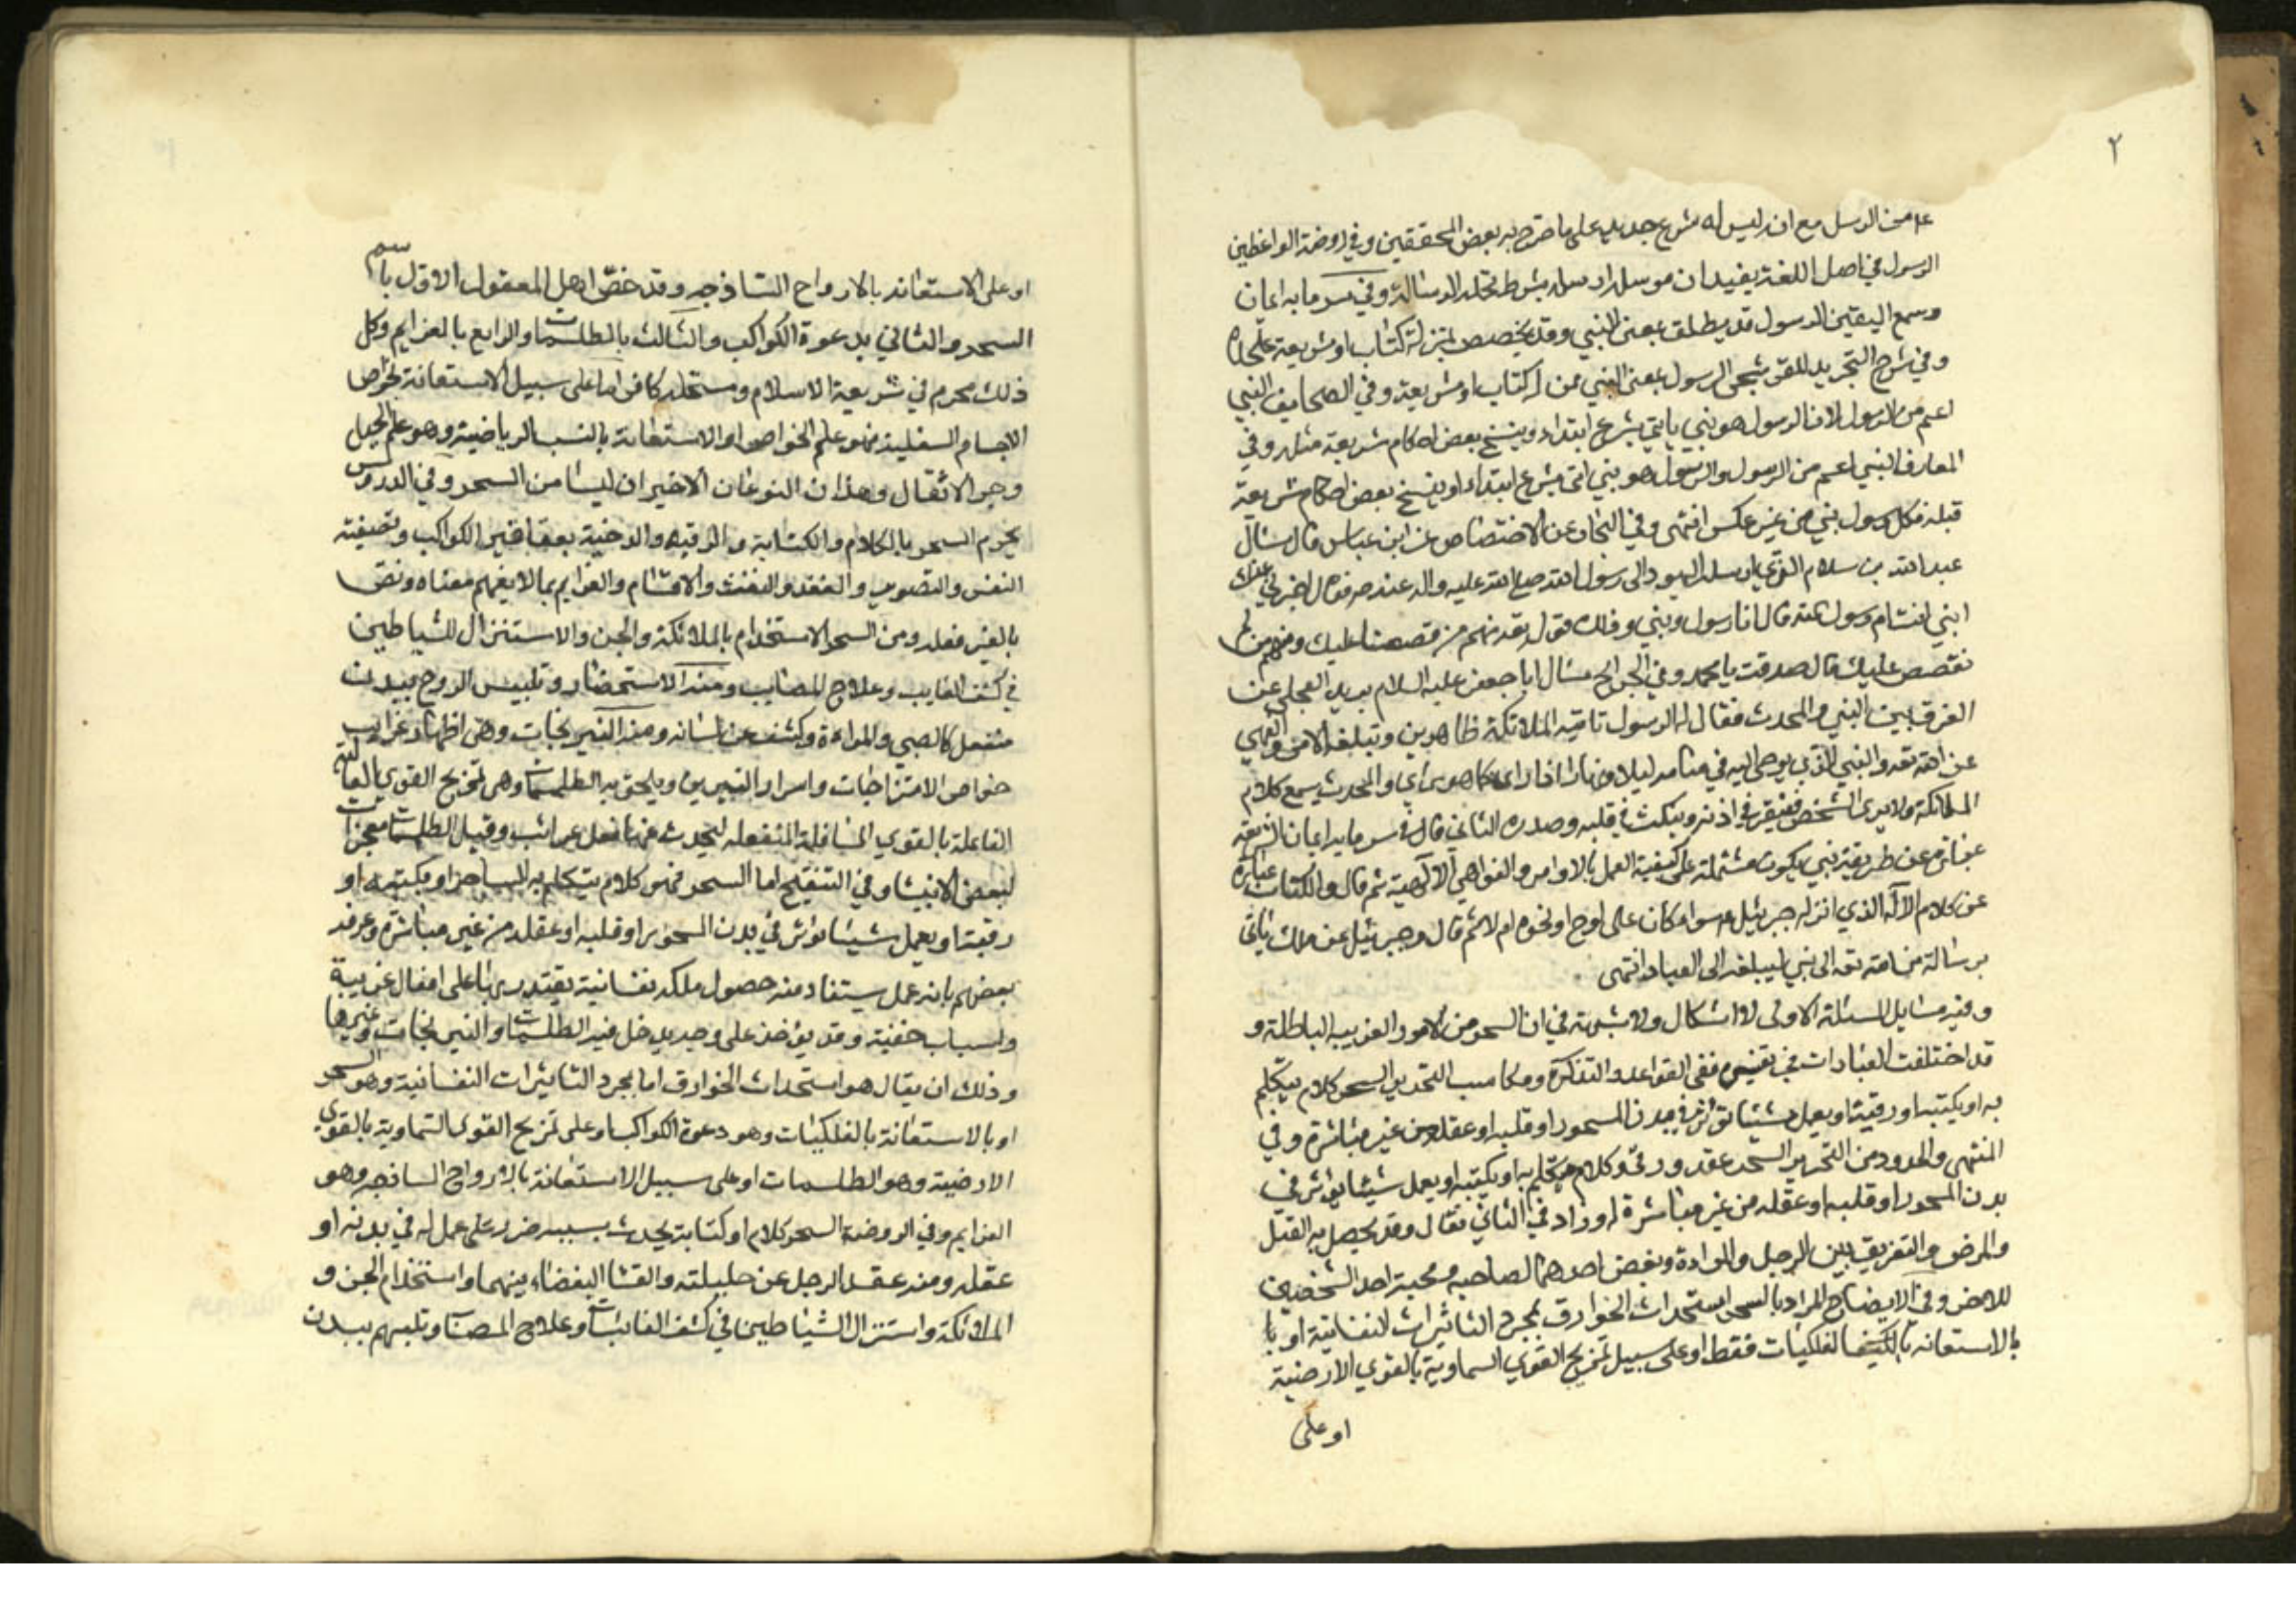 ٢
من الرسل مع انه ليس له شرع جديد على ما صرح به بعض المحققين وفي روضة الواعظين
الرسول في اصل اللغة يفيد ان مرسله ارسله بشرط تحمله الرسالة وفي سرمايه ايمان
وسمع اليقين الرسول قد يطلق بمعنى النبي وقد يخصص بمن له كتاب او شريعة على
وفي شرح التجريد للقوشجى الرسول بمعنى النبي ممن له كتاب او شريعة وفي الصحايف النبي
اعم من الرسول لان الرسول هو نبي ياتي بشرع ابتداء وينسخ بعض احكام شريعة مثله وفي
المعارف النبي اعم من الرسول والرسول هو نبي اتى بشرع ابتداء او ينسخ بعض احكام شريعة
قبله فكل رسول نبي من غير عكس انتهى وفي البحار عن الاختصاص عن ابن عباس قال سال
عبد الله بن سلام الذي ارسله اليهود الى رسول الله صلى الله عليه واله عنده فقال اخبرني
انبي انت ام رسول قال انا رسول ونبي وذلك قوله تعه منهم من قصصنا عليك ومنهم من لم
نقصص عليك قال صدقت يا محمد وفي الجرايح سال ابا جعفر عليه السلام بريد العجلي عن
الفرق بين النبي والمحدث فقال الرسول تاتيه الملائكة ظاهرين وتبلغه الامر والنهي
عن الله تعه والنبي الذي يوحى اليه في منامه ليلا ونهارا فما راى كما هو راي والمحدث يسمع كلام
الملائكة ولا يرى الشخص فينقر في اذنه وينكث في قلبه وصدره الثاني قال في سرمايه ايمان الشريعة
عبارة عن طريقة نبي يكون مشتملة على كيفية العمل بالاوامر والنواهي الالهية ثم قال والكتاب عبارة
عن كلام الاله الذي انزله جبرئيل سوا كان على لوح او نحوه ام لا ثم قال وجبرئيل عن ملك ياتى
برسالة من الله تعه الى نبي ليبلغه الى العباد انتهى
وفيه مسايل المسئلة الاولى لا اشكال ولا شبهة في ان السحر من الامور الغريبة الباطلة و
قد اختلفت العبارات في تفسيره ففي القواعد والتذكرة ومكاسب التحرير السحر كلام يتكلم
به او يكتبه او رقية او يعمل شيئا يؤثر في بدن المسحور او قلبه او عقله من غير مباشرة وفي
المنتهى والحدود من التحرير السحر عقد ورقى وكلام يتكلم به او يكتبه او يعمل شيئا يؤثر في
بدن المسحور او قلبه او عقله من غير مباشرة له وزاد في الثاني فقال وقد يحصل به القتل
والمرض والتفريق بين الرجل والمراة وبغض احدهما لصاحبه ومحبة احد الشخصين
للاخر وفي الايضاح المراد بالسحر استحداث الخوارق بمجرد التاثيرات النفسانية او با
بالاستعانه بالفلكيات فقط او على سبيل تمزيج القوي السماوية بالقوي الارضية
او على
او على الاستعانه بالارواح الساذجه وقد خص اهل المعقول الاول باسم
السحر والثاني بدعوة الكواكب والثالث بالطلسمات والرابع بالعزايم وكل
ذلك محرم في شريعة الاسلام ومستحله كافر اما على سبيل الاستعانة بخواص
الاجسام السفلية فهو علم الخواص او الاستعانة بالنسب الرياضية وهو علم الحيل
وجر الاثقال وهذان النوعان الاخيران ليسا من السحر وفي الدروس
يحرم السحر بالكلام والكتابة والرقية والدخنة بعقاقير الكواكب وتصفية
النفس والتصوير والعقد والنفث والاقسام والعزايم بما لا يفهم معناه ونص
بالغير فعله ومن السحر الاستخدام بالملائكة والجن والاستنزال للشياطين
في كشف الغايب وعلاج المصايب ومنه الاستحضار وتلبيس الروح ببدن
منفعل كالصبي والمراءة وكشف عن لسانه ومنه النيرنجات وهى اظهار غرايب
خواص الامتزاجات واسرار النيرين ويلحق به الطلسمات وهى تمزيج القوى العالية
الفاعلة بالقوي السافلة المنفعله ليحدث عنها فعل غرائب وقيل الطلسمات معجزات
لبعض الانبيا وفي التنقيح اما السحر فهو كلام يتكلم به الساحر او يكتبه او
رقية او يعمل شيئا يؤثر في بدن المسحور او قلبه او عقله من غير مباشرة وعرفه
بعضهم بانه عمل يستفاد منه حصول ملكة نفسانية يقتدر بها على افعال غريبة
واسباب خفية وقد يؤخذ على وجه يدخل فيه الطلسمات والنيرنجات وغيرها
وذلك ان يقال هو استحداث الخوارق اما بمجرد التاثيرات النفسانية وهو السحر
او بالاستعانة بالفلكيات وهو دعوة الكواكب او على تمزيج القوى السماوية بالقوي
الارضية وهو الطلسمات او على سبيل الاستعانة بالارواح الساذجه وهو
العزايم وفي الروضة السحر كلام او كتابة يحدث بسببه ضرر على من عمل له في بدنه او
عقله ومنه عقد الرجل عن حليلته والقاء البغضاء بينهما واستخدام الجن و
الملائكة واستنزال الشياطين في كشف الغائبات وعلاج المصاب وتلبسهم ببدن